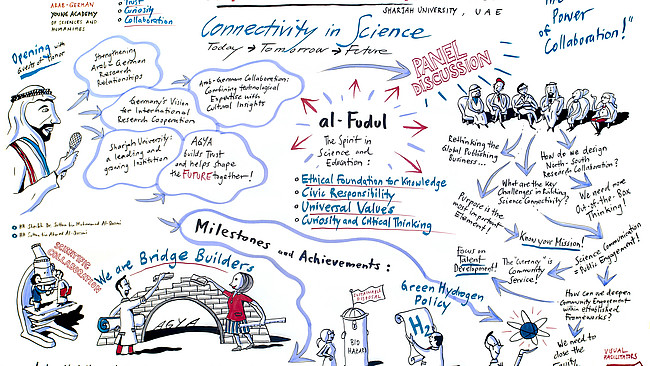 ARAB-GERMAN
YOUNG ACADEMY
OF SCIENCES AND
HUMANITIES
Trust
Curiosity
Collaboration
SHARJAH UNIVERSITY, UAE
Connectivity in Science
Today → Tomorrow → Future
The
Power
of
Collaboration!"
Opening with
Guests of Honor
Strengthening
Arab-German
Research
Relationships
Germany's Vision
for International
Research Cooperation
Arab-German Collaboration:
Combining technological
Expertise with
Cultural Insights
Sharjah University:
a leading and
growing Institution
AGYA
builds Trust
and helps shape
the FUTURE together!
PANEL
DISCUSSION
al-Fudul
The Spirit in
Science and
Education:
Ethical Foundation for Knowledge
Civic Responsibility
Universal Values
Curiosity and Critical Thinking
Rethinking the
Global Publishing
Business...
How do we design
North-South
Research Collaboration?
What are the Key
Challenges in Building
Science Connectivity?
We need more
Out-of-the-Box
Thinking!
Purpose is the
most important
Element!
Know your Mission!
Focus on
Talent
Development!
The "Currency" is
Community
Service!
Science Communication
+ Public Engagement!
How can we deepen
Community Engagement
within established
Frameworks?
We need to
close the
SCIENTIFIC
COLLABORATION
We are Bridge Builders
AGYA
Milestones and Achievements:
SUSTAINABLE
DISPOSAL
BIO
HAZARD
Green Hydrogen
Policy
H2
VISUAL
FACILITATORS